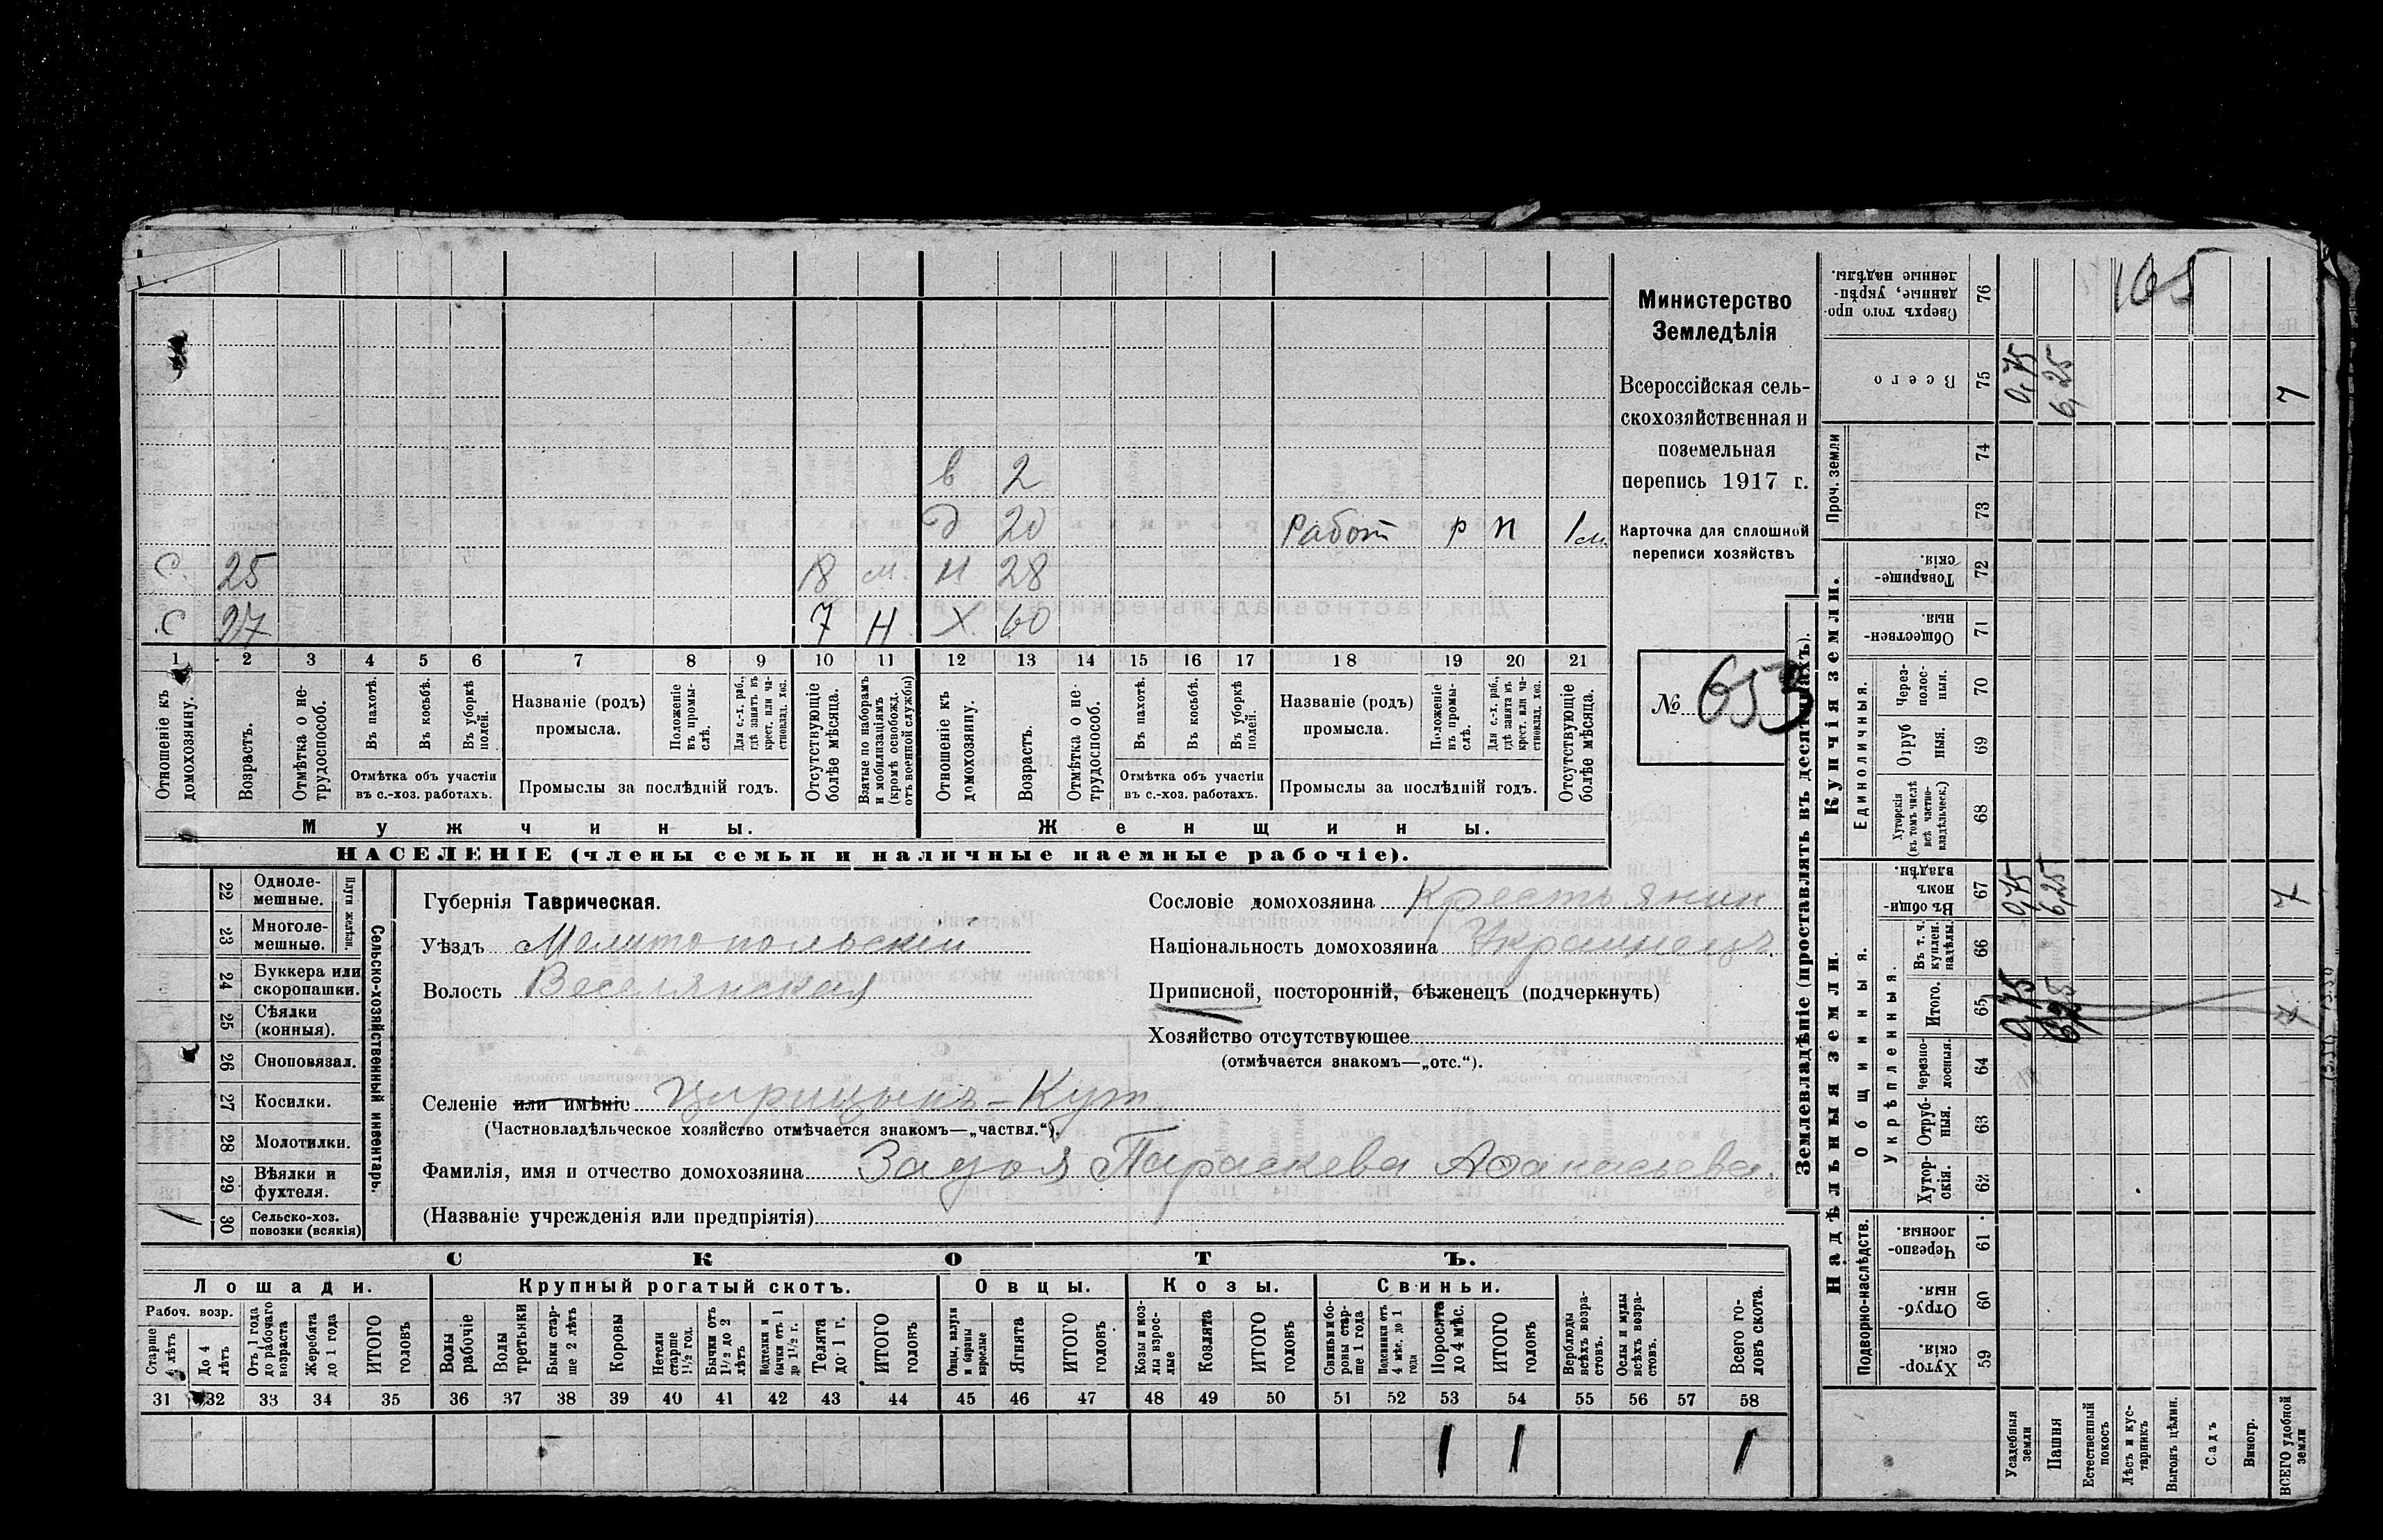 в 2
д 20 Работ р п 1 м.
С. 25 18 м. Н 28
С 27 7 Н Х 60
1 2 3 4 5 6 7 8 9 10 11 12 13 14 15 16 17 18 19 20 21
Отношеніе къ домохозяину.
Возрастъ.
Отмѣтка о не-трудоспособ.
Въ пахотѣ.
Въ косьбѣ.
Въ уборкѣ полей.
Отмѣтка объ участіи въ с.-хоз. работахъ.
Названіе (родъ) промысла.
Положеніе въ промы-слѣ.
Для с.-х. раб., гдѣ занятъ въ крест. или ча-стновлад. хоз.
Промыслы за послѣдній годъ.
Отсутствующіе болѣе мѣсяца.
Взятые по наборамъ и мобилизаціямъ (кромѣ освобожд. отъ военной службы)
Отношеніе къ домохозяину.
Возрастъ.
Отмѣтка о не-трудоспособ.
Въ пахотѣ.
Въ косьбѣ.
Въ уборкѣ полей.
Отмѣтка объ участіи въ с.-хоз. работахъ.
Названіе (родъ) промысла.
Положеніе въ промы-слѣ.
Для с.-х. раб., гдѣ занята въ крест. или ча-стновлад. хоз.
Промыслы за послѣдній годъ.
Отсутствующіе болѣе мѣсяца.
Мужчины.
Женщины.
НАСЕЛЕНІЕ (члены семьи и наличные наемные рабочіе).
Министерство
Земледѣлія
Всероссійская сель-
скохозяйственная и
поземельная
перепись 1917 г.
Карточка для сплошной
переписи хозяйствъ
№ 653
22 Одноле-мешные.
23 Многоле-мешные.
Плуги желѣзн.
24 Буккера или скоропашки.
25 Сѣялки (конныя).
26 Сноповязал.
27 Косилки.
28 Молотилки.
29 Вѣялки и фухтеля.
/ 30 Сельско-хоз. повозки (всякія)
Сельско-хозяйственный инвентарь.
Губернія Таврическая.
Уѣздъ Мелитопольскій
Волость Веселянская
Сословіе домохозяина Крестьянин
Національность домохозяина Украинецъ.
Приписной, посторонній, бѣженецъ (подчеркнуть)
Хозяйство отсутствующее
(отмѣчается знакомъ—„отс.“).
Селеніе или имѣніе Царицынъ-Кут
(Частновладѣльческое хозяйство отмѣчается знакомъ—„частвл.“).
Фамилія, имя и отчество домохозяина Задоя Параскева Афанасьева.
(Названіе учрежденія или предпріятія)
СКОТЪ.
Лошади. Крупный рогатый скотъ. Овцы. Козы. Свиньи.
Рабоч. возр.
Старше 4 лѣтъ
До 4 лѣтъ
Отъ 1 года до рабочаго возраста
Жеребята до 1 года
ИТОГО головъ
Волы рабочіе
Волы третьяки
Быки стар-ше 2 лѣтъ
Коровы
Нетели старше 1½ год.
Бычки отъ 1½ до 2 лѣтъ
Подтелки и бычки отъ 1 до 1½ г.
Телята до 1 г.
ИТОГО головъ
Овцы, валухи и бараны взрослые
Ягнята
ИТОГО головъ
Козы и коз-лы взрос-лые
Козлята
ИТОГО головъ
Свиньи и бо-ровы стар-ше 1 года
Подсвинки отъ 4 мѣс. до 1 года
Поросята до 4 мѣс.
ИТОГО головъ
Верблюды всѣхъ возра-стовъ.
Ослы и мулы всѣхъ возра-стовъ.
Всего го-ловъ скота.
31 32 33 34 35 36 37 38 39 40 41 42 43 44 45 46 47 48 49 50 51 52 53 54 55 56 57 58
1 1 1
Землевладѣніе (проставлять въ десятинахъ).
Надѣльныя земли.
Купчія земли.
Подворно-наслѣдств.
Общинныя.
Укрѣпленныя.
Единоличныя.
Проч. земли
Сверхъ того про-данные, укрѣп-ленные надѣлы. 76
Всего 75 0,75 6,25 7
74
73
Товарище-скія. 72
Обществен-ныя 71
Через-полос-ныя. 70
Отруб ныя. 69
Хуторскія (въ томъ числѣ всѣ частно-владѣльческ.) 68
Въ общи-номъ владѣн. 67 0,75 6,25 7
Въ т. ч. куплен. надѣлы. 66
Итого. 65 0,75 6,25
Черезпо-лосныя. 64
Отруб-ныя. 63
Хутор-скія. 62
Черезпо-лосныя. 61
Отруб-ныя. 60
Хутор-скія. 59
Усадебныя земли
Пашня
Естественный покосъ
Лѣсъ и кус-тарникъ
Выгонъ цѣлин.
Садъ
Виногр.
ВСЕГО удобной земли
165